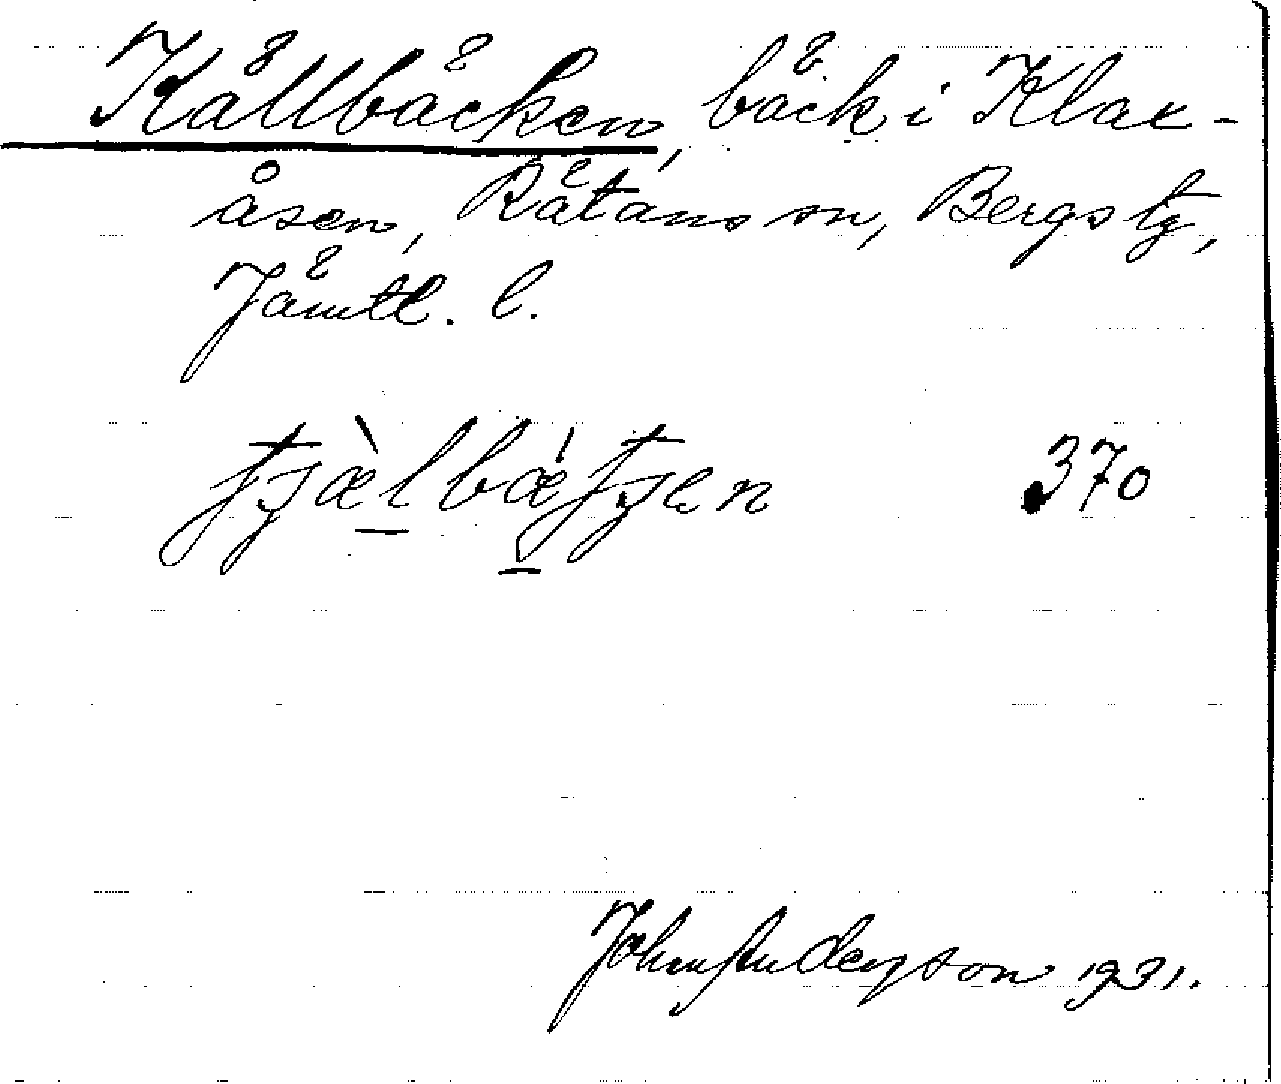 Källbäcken, bäck i Klax-
åsen, Rätans sn, Bergs tg,
Jämtl. l.
370
John Anderson 1931.